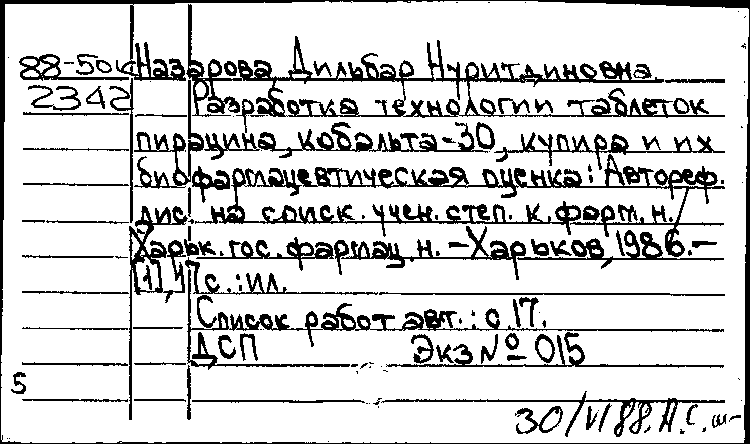 88-50к Назарова, Дильбар Нуритдиновна
2342 Разработка технологии таблеток
пирацина, кобальта-30, купира и их
биофармацевтическая оценка: Автореф.
дис. на соиск. учен. степ. к. фарм. н. /
Харьк. гос. фармац. н. - Харьков, 1986. -
[1], 17 с. : ил.
Список работ авт.: с. 17.
ДСП Экз № 015
5
30/VI 88. А.С.